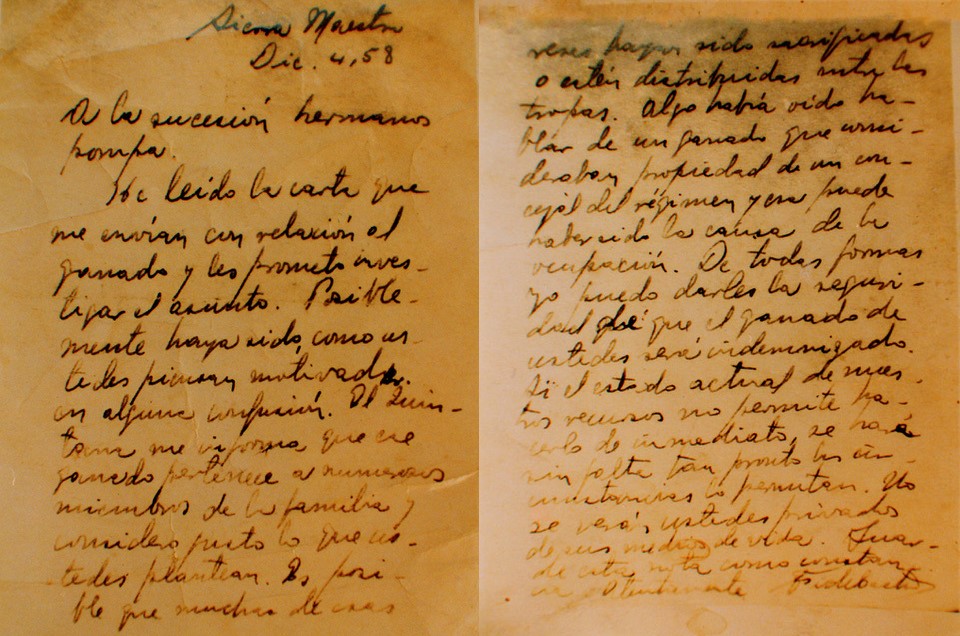 Sierra Maestra
Dic. 4, 58
A la sucesión hermanos
pompa.
He leído la carta que
me envían con relación al
ganado y les prometo inves-
tigar el asunto. Posible-
mente haya sido, como us-
tedes piensan, motivado
en alguna confusión. El Quin-
tana me informa que ese
ganado pertenece a numerosos
miembros de la familia y
considero justo lo que us-
tedes plantean. Es posi-
ble que muchas de esas
reses hayan sido sacrificadas
o estén distribuidas entre las
tropas. Algo había oido ha-
blar de un ganado que consi-
deraban propiedad de un con-
cejal del régimen y esa puede
haber sido la causa de la
ocupación. De todas formas
yo puedo darles la seguri-
dad que el ganado de
ustedes será indemnizado.
Si el estado actual de nues-
tros recursos no permite ha-
cerlo de inmediato, se hará
sin falta tan pronto las cir-
cunstancias lo permitan. No
se verán ustedes privados
de sus medios de vida. Guar-
de esta nota como constan-
cia Atentamente Fidel Castro